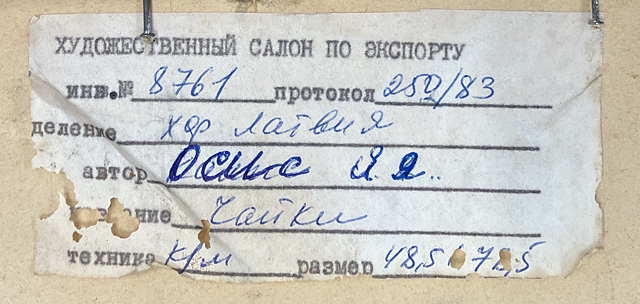 ХУДОЖЕСТВЕННЫЙ САЛОН ПО ЭКСПОРТУ
инв.№ 8761 протокол 259/83
деление хф Латвия
автор Осис Я. Я.
название Чайки
техника к/м размер 48,5 72,5